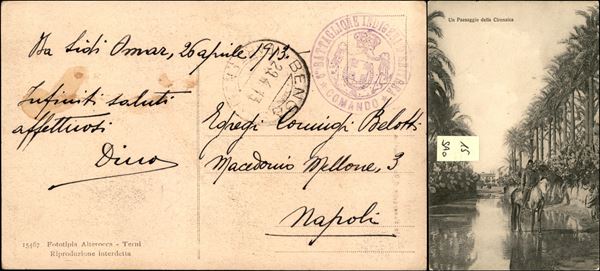 Da Sidi Omar, 26 aprile 1913.
Infiniti saluti
affettuosi
Dino
15467 Fototipia Alterocca - Terni
Riproduzione interdetta
BENG
29.4.13
BATTAGLIONE INDIGENI
COMANDO
Egregi Coniugi Belotti
Macedonio Mellone, 3
Napoli
Un Paesaggio della Cirenaica
15
SAO